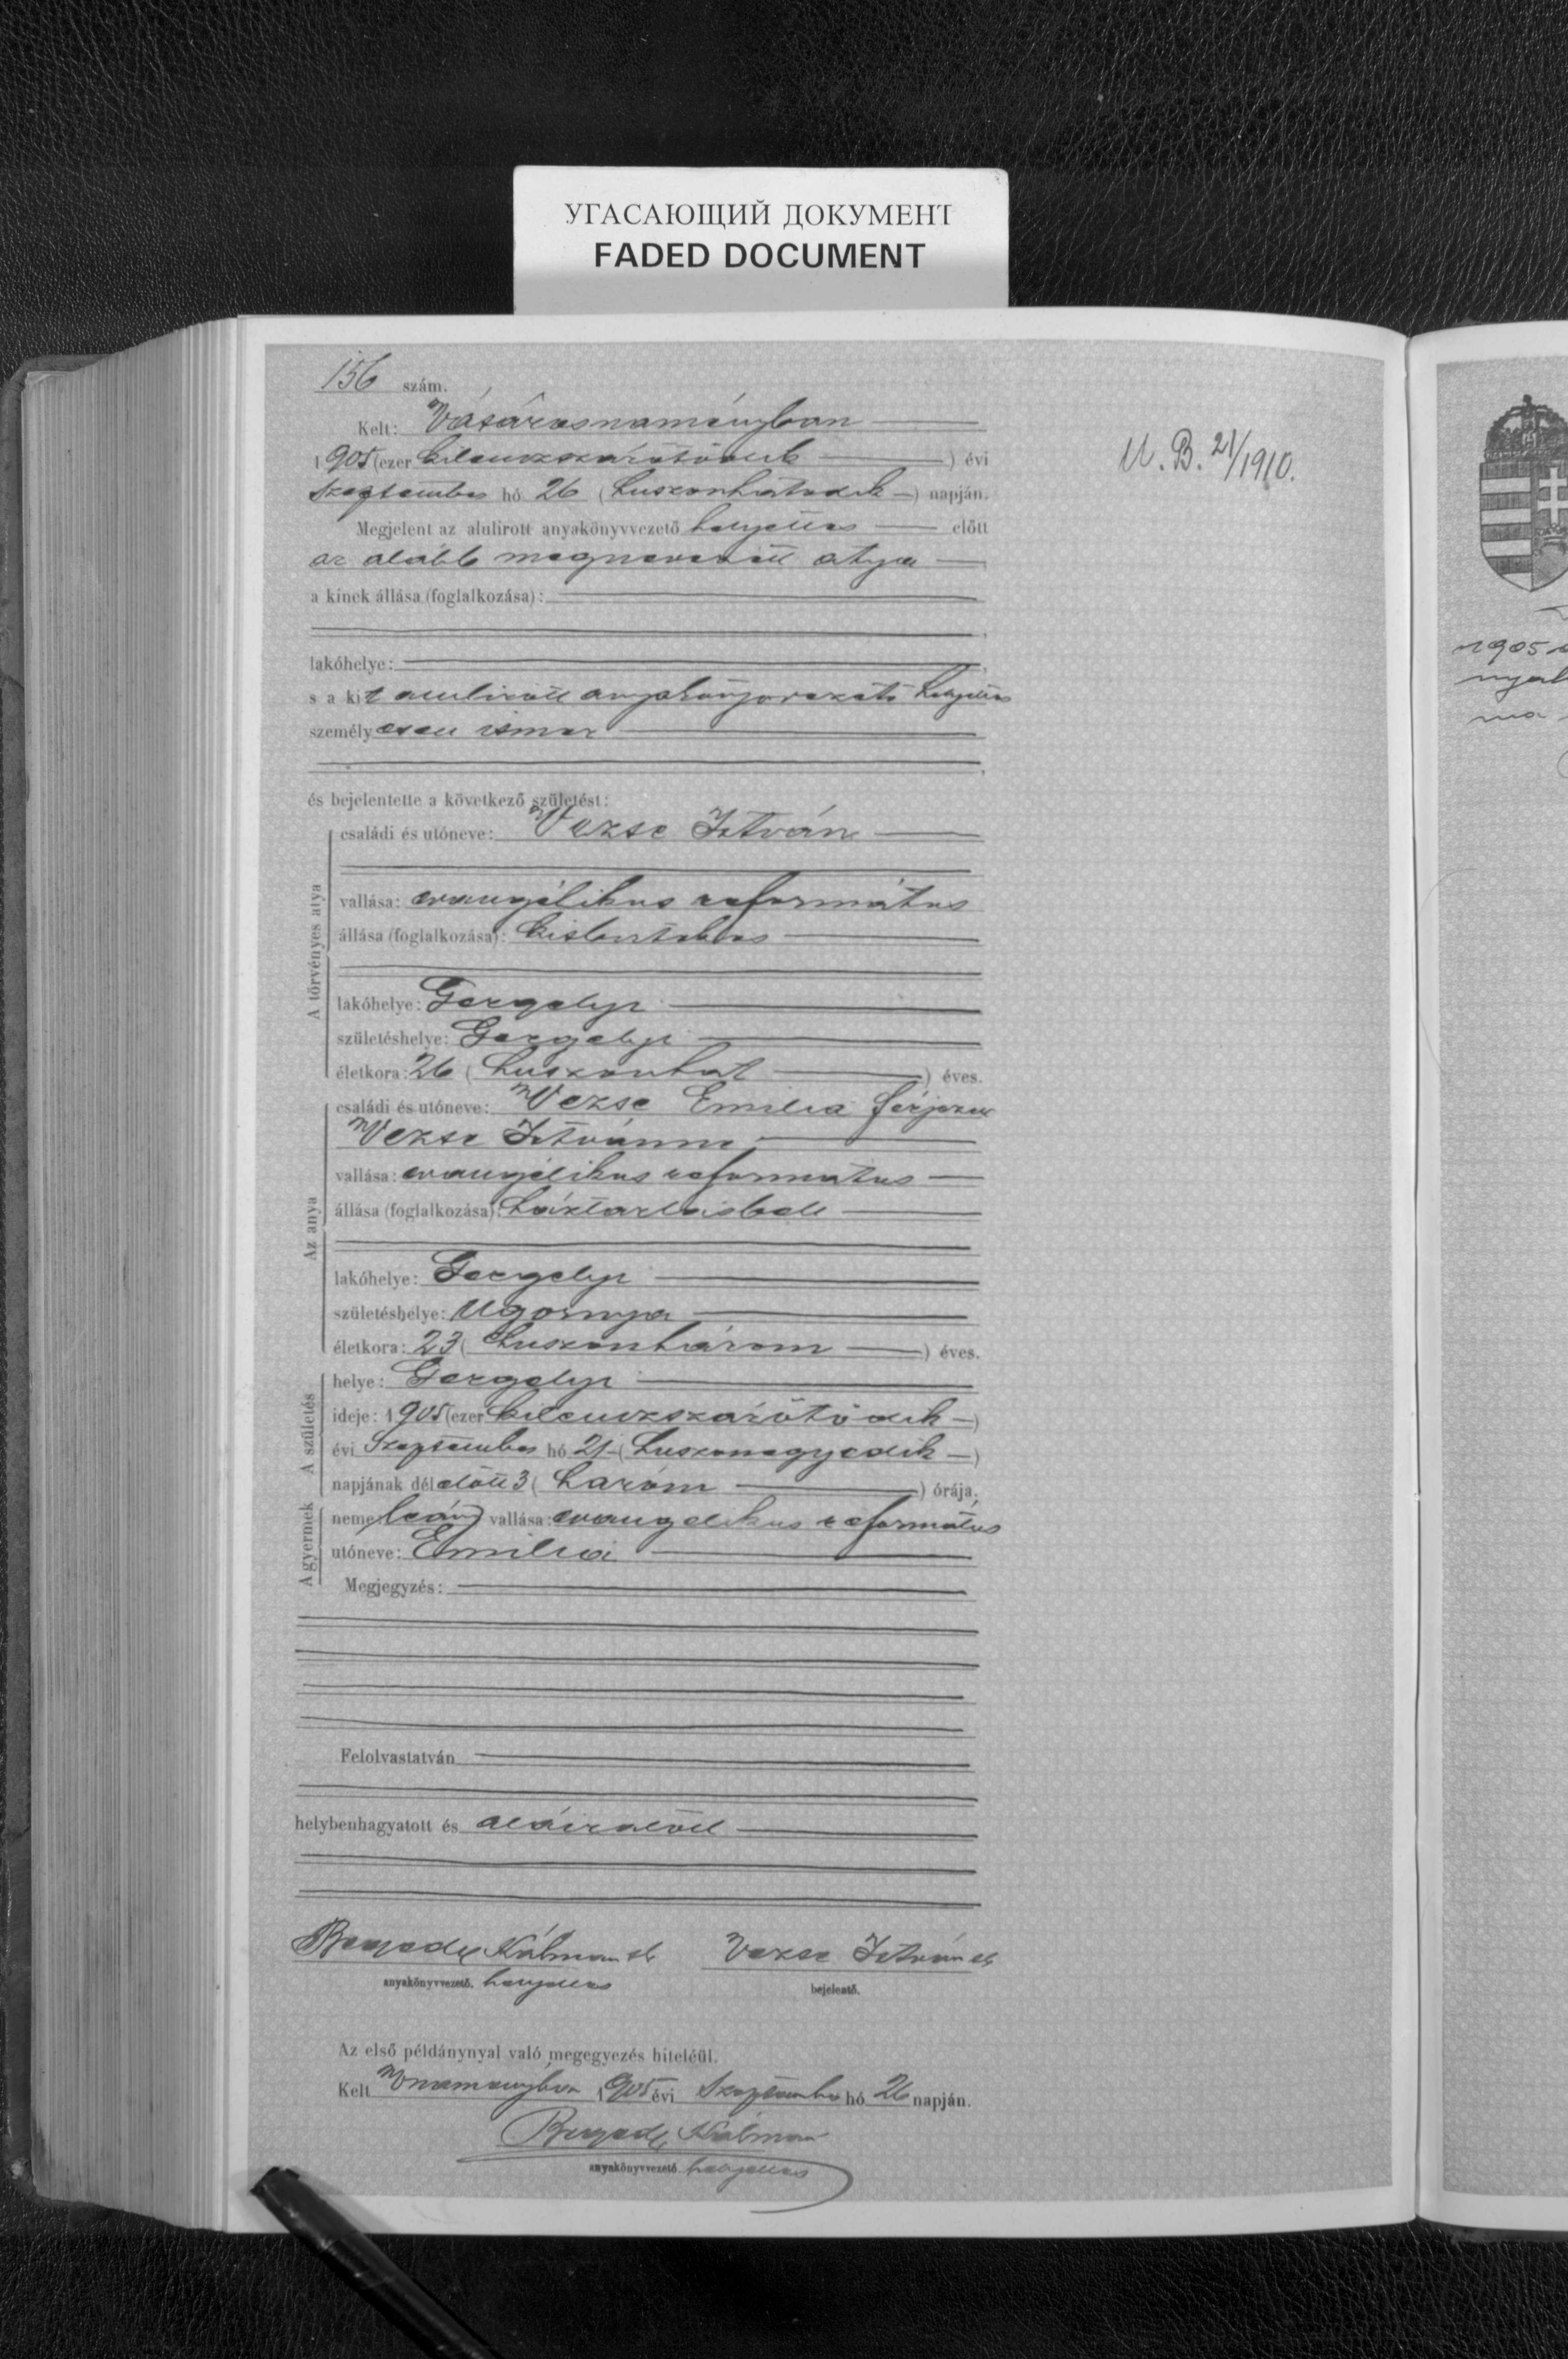 УГАСАЮЩИЙ ДОКУМЕНТ
FADED DOCUMENT
156 szám.
Kelt: Vásárosnaményban
1905 (ezer kilenczszázötödik) évi
Szeptember hó 26 (huszonhatodik) napján.
Megjelent az alulirott anyakönyvvezető helyettes előtt
az alább megnevezett atya
a kinek állása (foglalkozása):
lakóhelye:
s a kit alulirott anyakönyvvezető helyettes
személyesen ismer
és bejelentette a következő születést:
A törvényes atya
családi és utóneve: Vezse István
vallása: evangélikus református
állása (foglalkozása): kisbirtokos
lakóhelye: Gergelyi
születéshelye: Gergelyi
életkora: 26 (huszonhat) éves.
Az anya
családi és utóneve: Vezse Emilia férjezett
Vezse Istvánné
vallása: evangélikus református
állása (foglalkozása): háztartásbeli
lakóhelye: Gergelyi
születéshelye: Ugornya
életkora: 23 (huszonhárom) éves.
A születés
helye: Gergelyi
ideje: 1905 (ezer kilenczszázötödik)
évi Szeptember hó (huszonegyedik)
napjának délelőtt 3 (három) órája.
A gyermek
neme: leány vallása: evangelikus református
utóneve: Emilia
Megjegyzés:
Felolvastatván
helybenhagyatott és aláiratott
Kálmán sk Vezse István sk
anyakönyvvezető. helyettes bejelentő.
Az első példánynyal való megegyezés hiteléül.
Kelt Vnaményban 1905 évi Szeptember hó 26 napján.
Kálmán
anyakönyvvezető helyettes
U. B. 21/1910.
1905